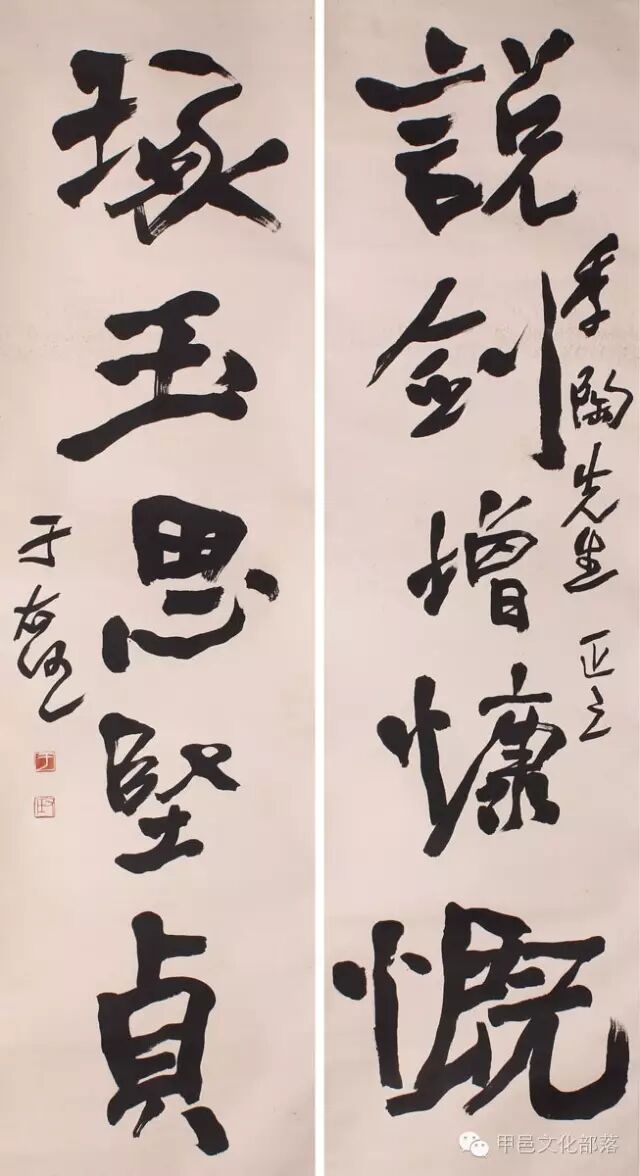 說劍增慷慨
季陶先生正之
琢玉思堅貞
于右任
于
甲邑文化部落